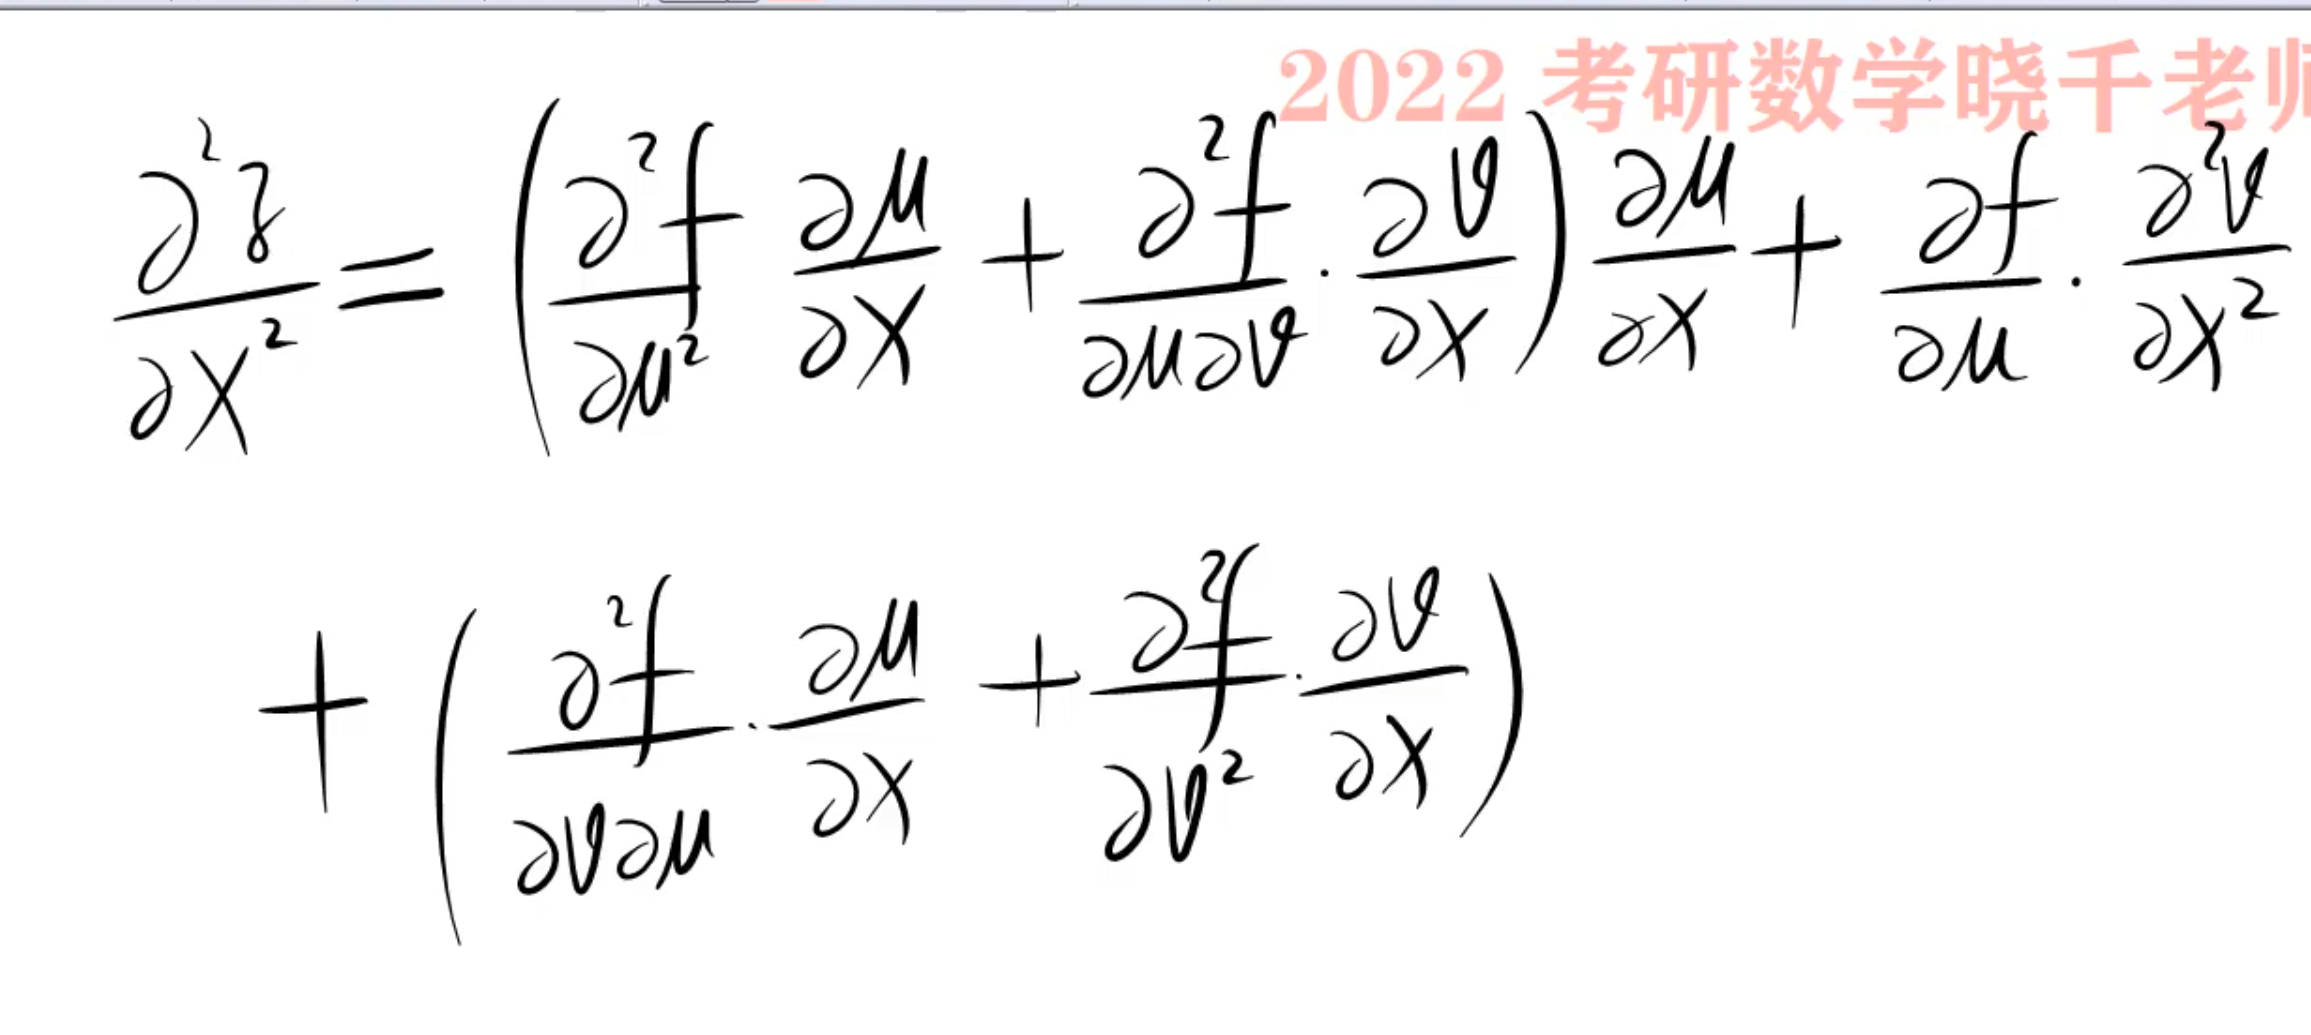 2022 考研数学晓千老师
∂²z/∂x² = (∂²f/∂μ² ∂μ/∂x + ∂²f/∂μ∂v · ∂v/∂x) ∂μ/∂x + ∂f/∂μ · ∂²v/∂x²
+ (∂²f/∂v∂μ · ∂μ/∂x + ∂²f/∂v² · ∂v/∂x)